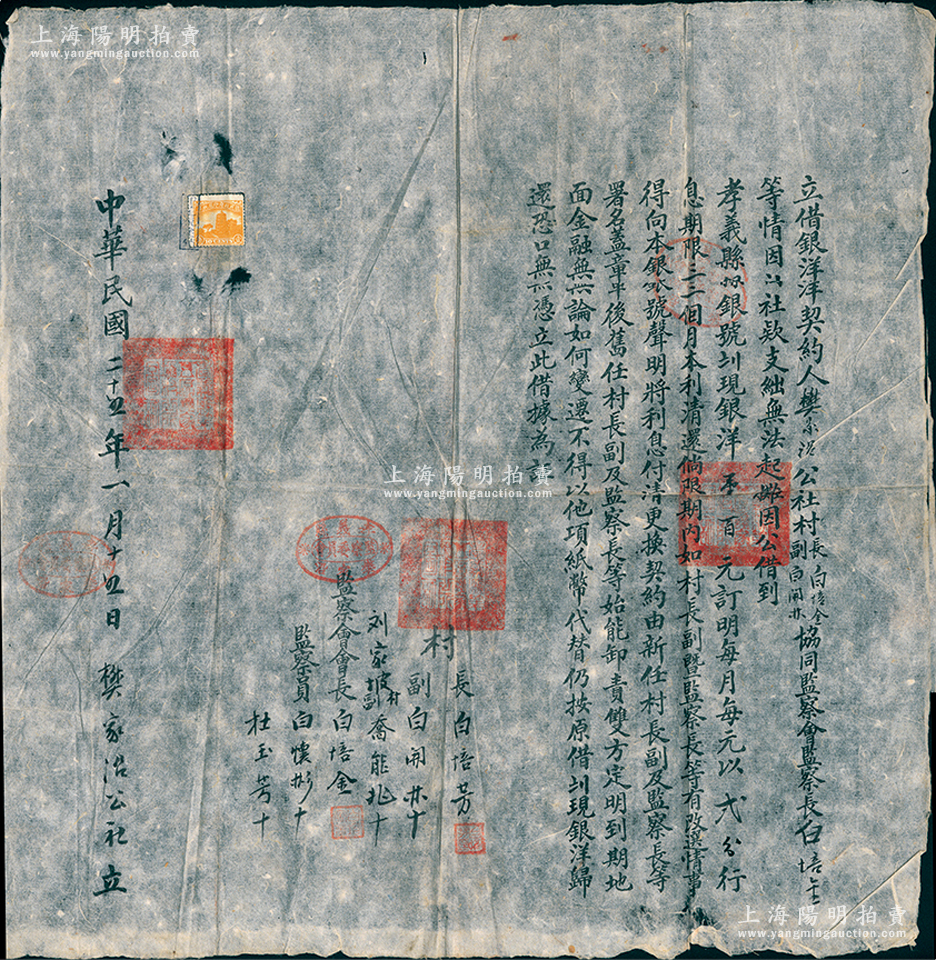 上海陽明拍賣
www.yangmingauction.com
立借銀洋洋契約人樊家沿公社村長副白培金白開亦協同監察會監察長白培金
等情因以社欵支絀無法起儺因公借到
孝義縣 銀號刘現銀洋 百元訂明每月每元以弍分行
息期限三二個月本利清還倘限期內如村長副暨監察長等有改選情事
得向本銀號聲明將利息付清更換契約由新任村長副及監察長等
署名蓋章後舊任村長副及監察長等始能卸責雙方定明到期地
面金融無論如何變遷不得以他項紙幣代替仍按原借刘現銀洋歸
還恐口無憑立此借據為
村長白培芳
副白開亦十
刘家坡村副喬能兆十
監察會會長白培金
監察員白懷彬十
杜玉芳十
中華民國二十五年一月十五日 樊家沿公社立
上海陽明拍賣
www.yangmingauction.com
上海陽明拍賣
www.yangmingauction.com